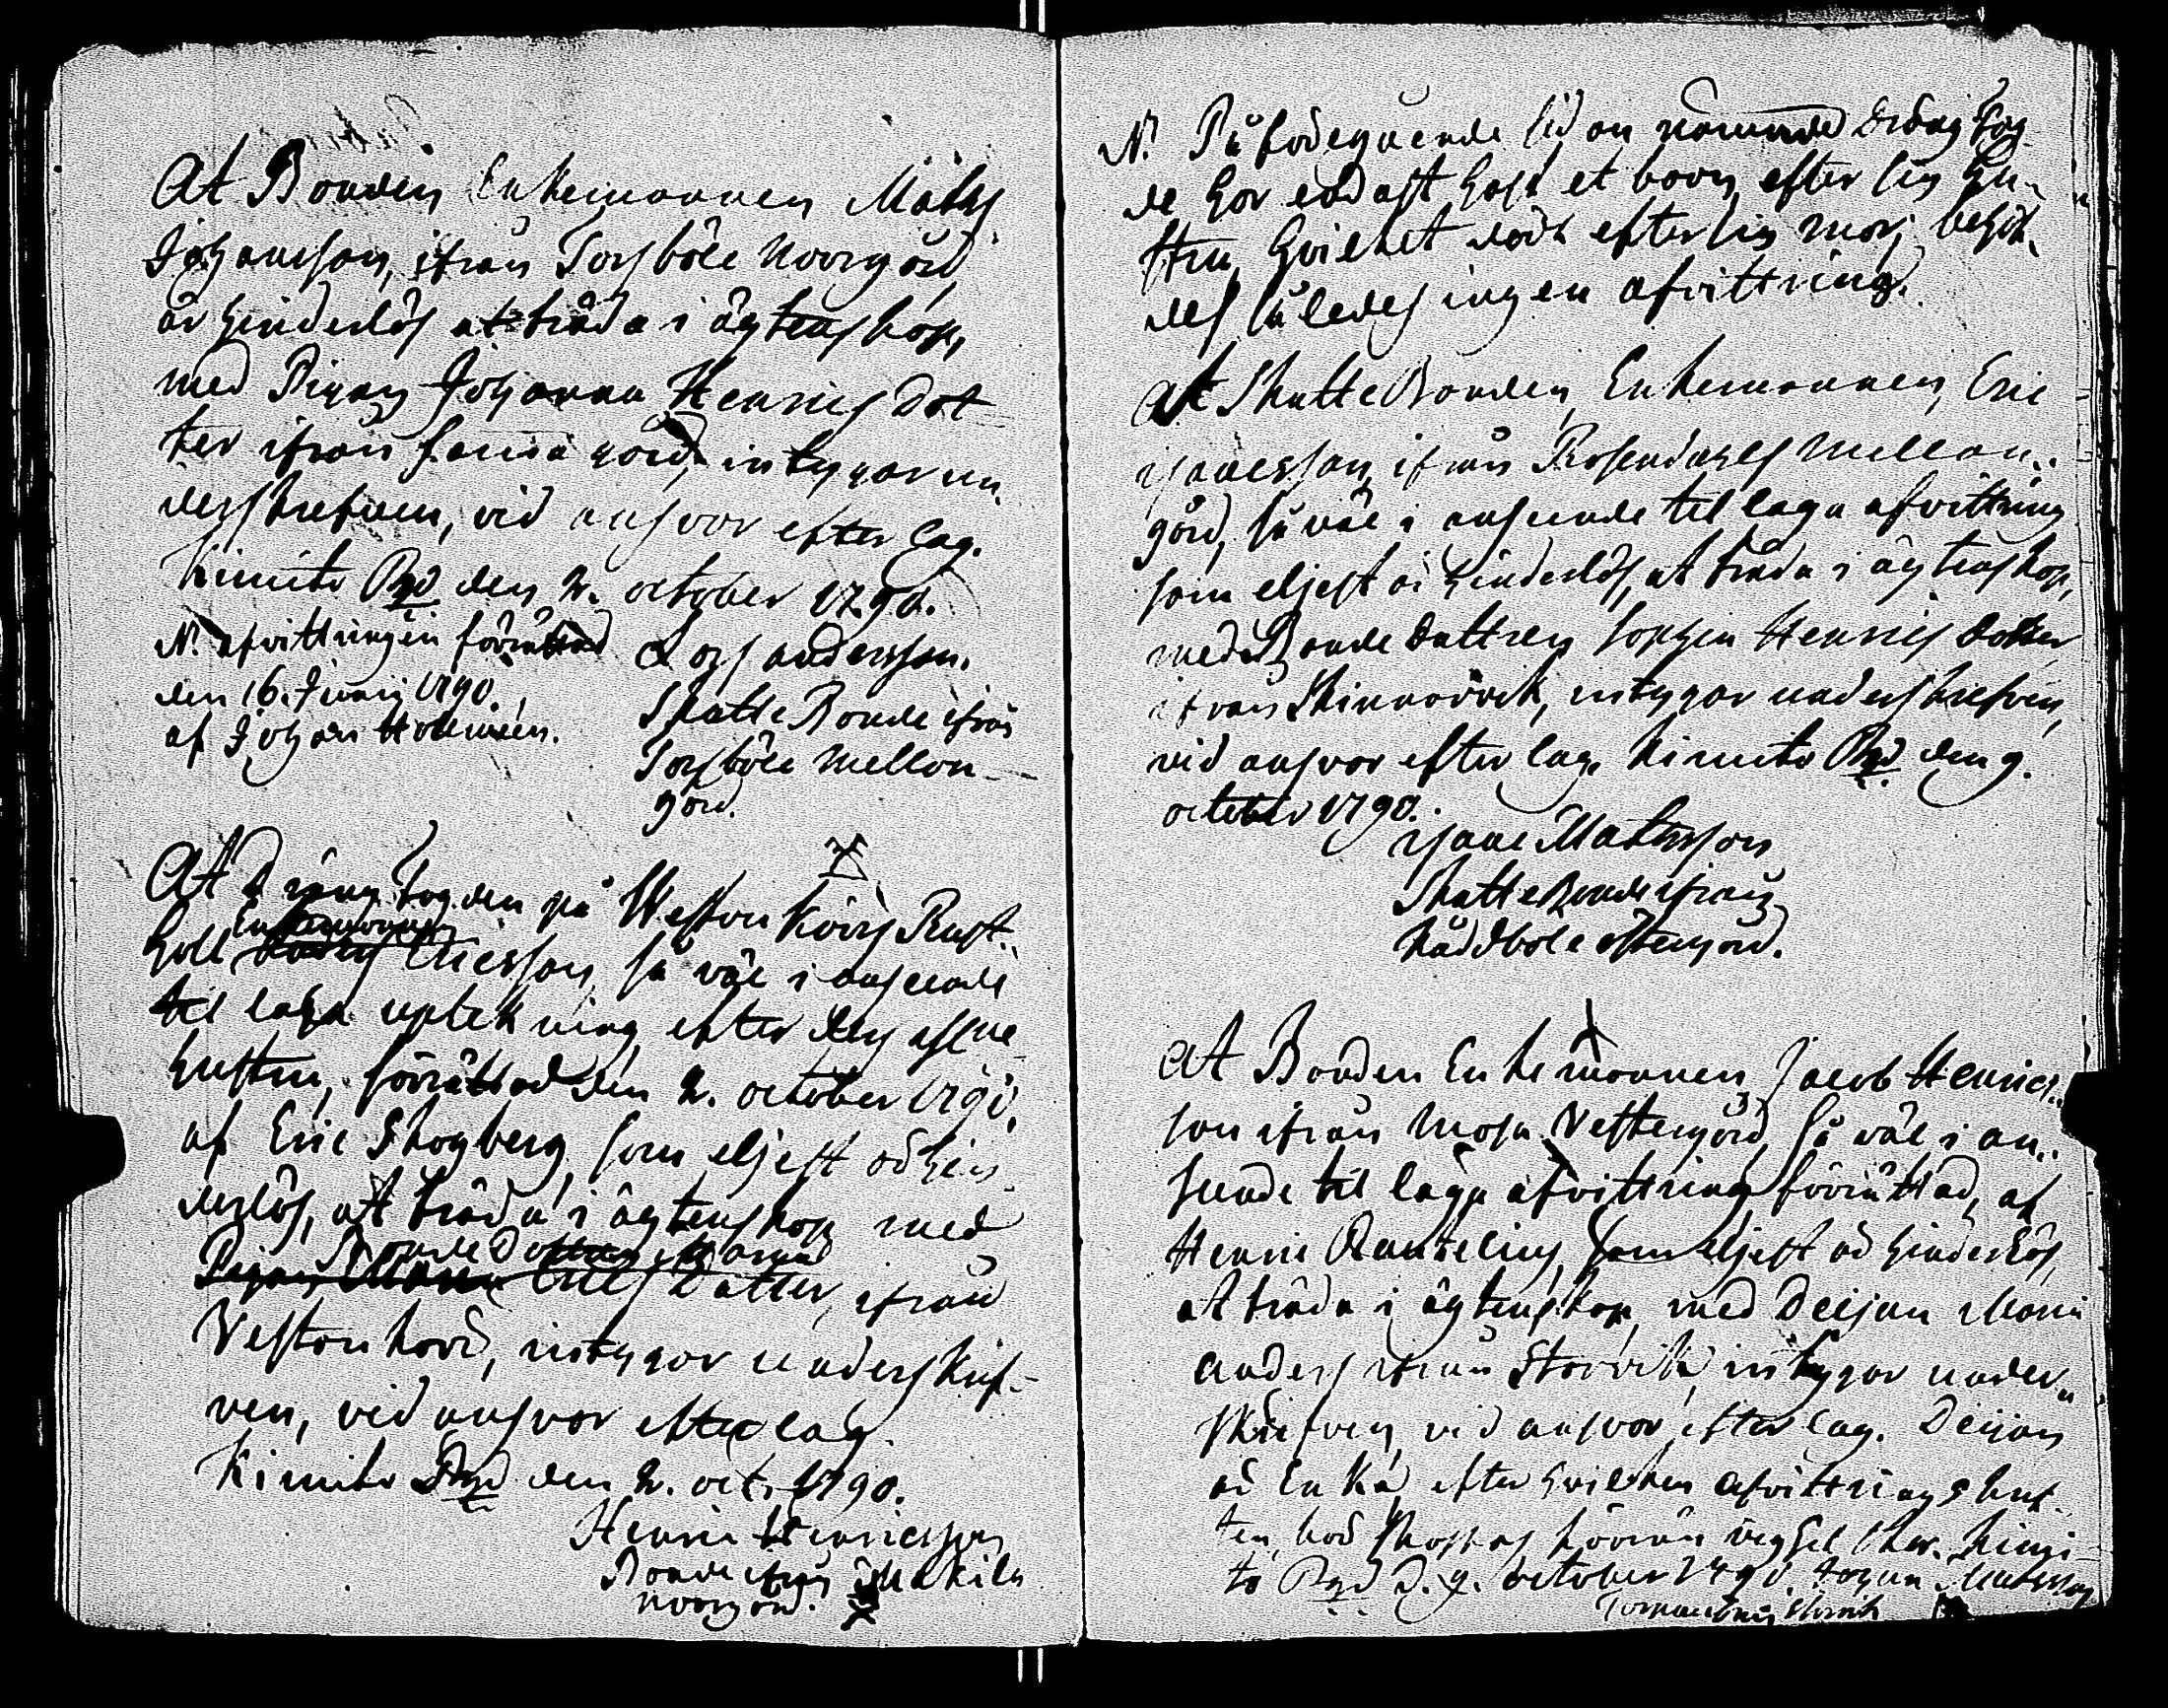 At Bonden Enkemannen Mats
Johansson, ifrån Torsböle Norrgård
är hinderlös at träda i ägtenskap,
med Pigan Johanna Henrics Dot
ter ifrån gård, intygar un
derskrefven, vid answar efter lag.
Kimito Pgd den 2. october 1790.
N. afvittringen förrättad
den 16. Junij 1790.
af Johan Holmén.
Lars andersson.
Skatte Bonde ifrån
Torsböle Mellan-
gård.
At drängfogden på Westankärs Rust-
håll Enkemannen Ericsson, så väl i anseende
til laga uptekning efter den afl.
hustru, förrättad den 2. october 1790.
af Eric Skogberg, som eljest är hin
derlös, at träda i ägtenskap med
Bonde Dottren Maria
Pigan Erics Datter, ifrån
Vestankärr, intygar underskrif-
ven, vid answar efter lag.
Kimito Pgd den 2. oct. 1790.
Henric Henricsson
Bonde ifrån Makila
norrgård.
N. På föregående sid an nämnde drängfog
de har endast haft et barn efter sin hu-
stru, hvilket dödt efter sin mor, behöf-
des således ingen afvittring.
At Skatte Bonden, Enkemannen, Eric
Isaacsson, ifrån Rosendahls Mellan-
gård, så väl i anseende til laga afvittring
som eljest är hinderlös, at träda i ägtenskap,
med Bonde Dattren Henrics dotter
ifrån Skinnarvik, intygar underskrefven,
vid answar efter lag. Kimito Pgd den 9.
october 1790.
Isaac Matsson
Skatte Bonde ifrån
Råddböle östergård.
At Bonden Enkemannen Jacob Henrics-
son ifrån Mosa Vestergård, så väl i an-
seende til laga afvittring förrättad, af
Henric som eljest är hinderlös,
at träda i ägtenskap med Deijan Maria
Anders ifrån Storvik, intygar under-
skrefven, vid answar efter lag. Deijan
är Enka, efter hvilken afvittrings
Kimi-
to Pgd d. 9. october 1790. Johan Matsson